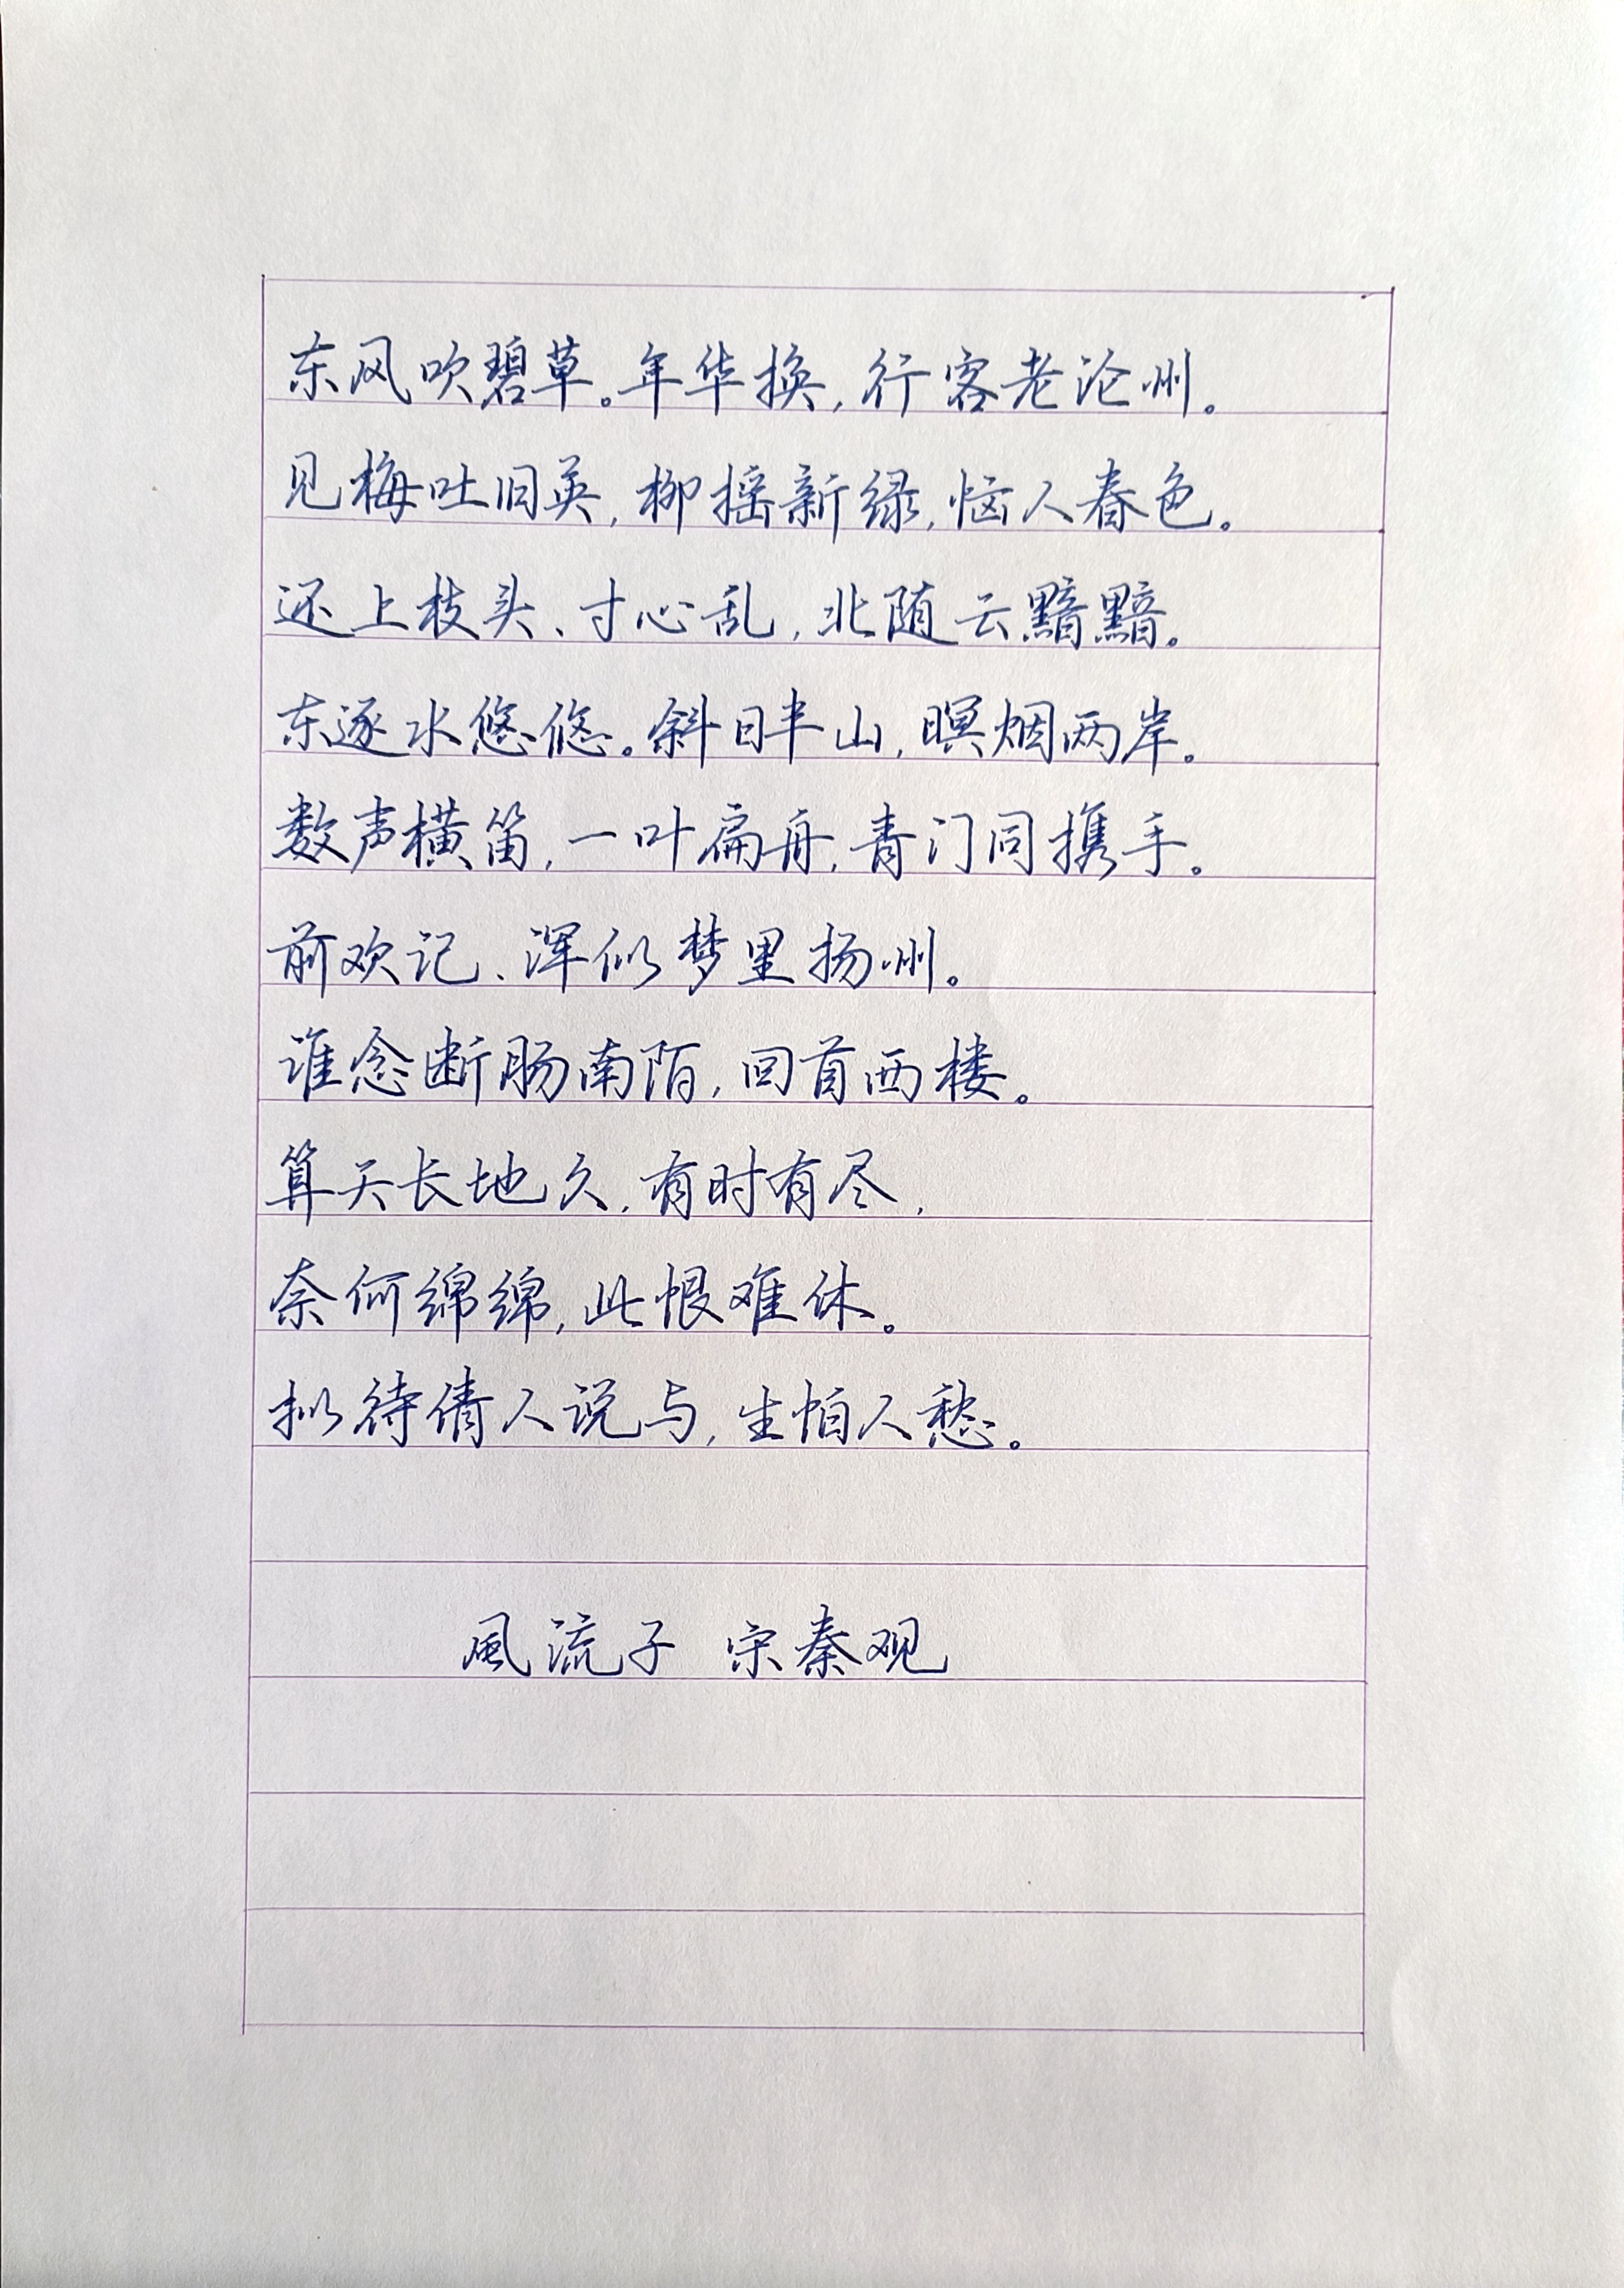 东风吹碧草。年华换,行客老沧州。
见梅吐旧英,柳摇新绿,恼人春色。
还上枝头、寸心乱,北随云黯黯。
东逐水悠悠。斜日半山,暝烟两岸。
数声横笛,一叶扁舟,青门同携手。
前欢记、浑似梦里扬州。
谁念断肠南陌,回首西楼。
算天长地久,有时有尽,
奈何绵绵,此恨难休。
拟待倩人说与,生怕人愁。
風流子 宋秦观